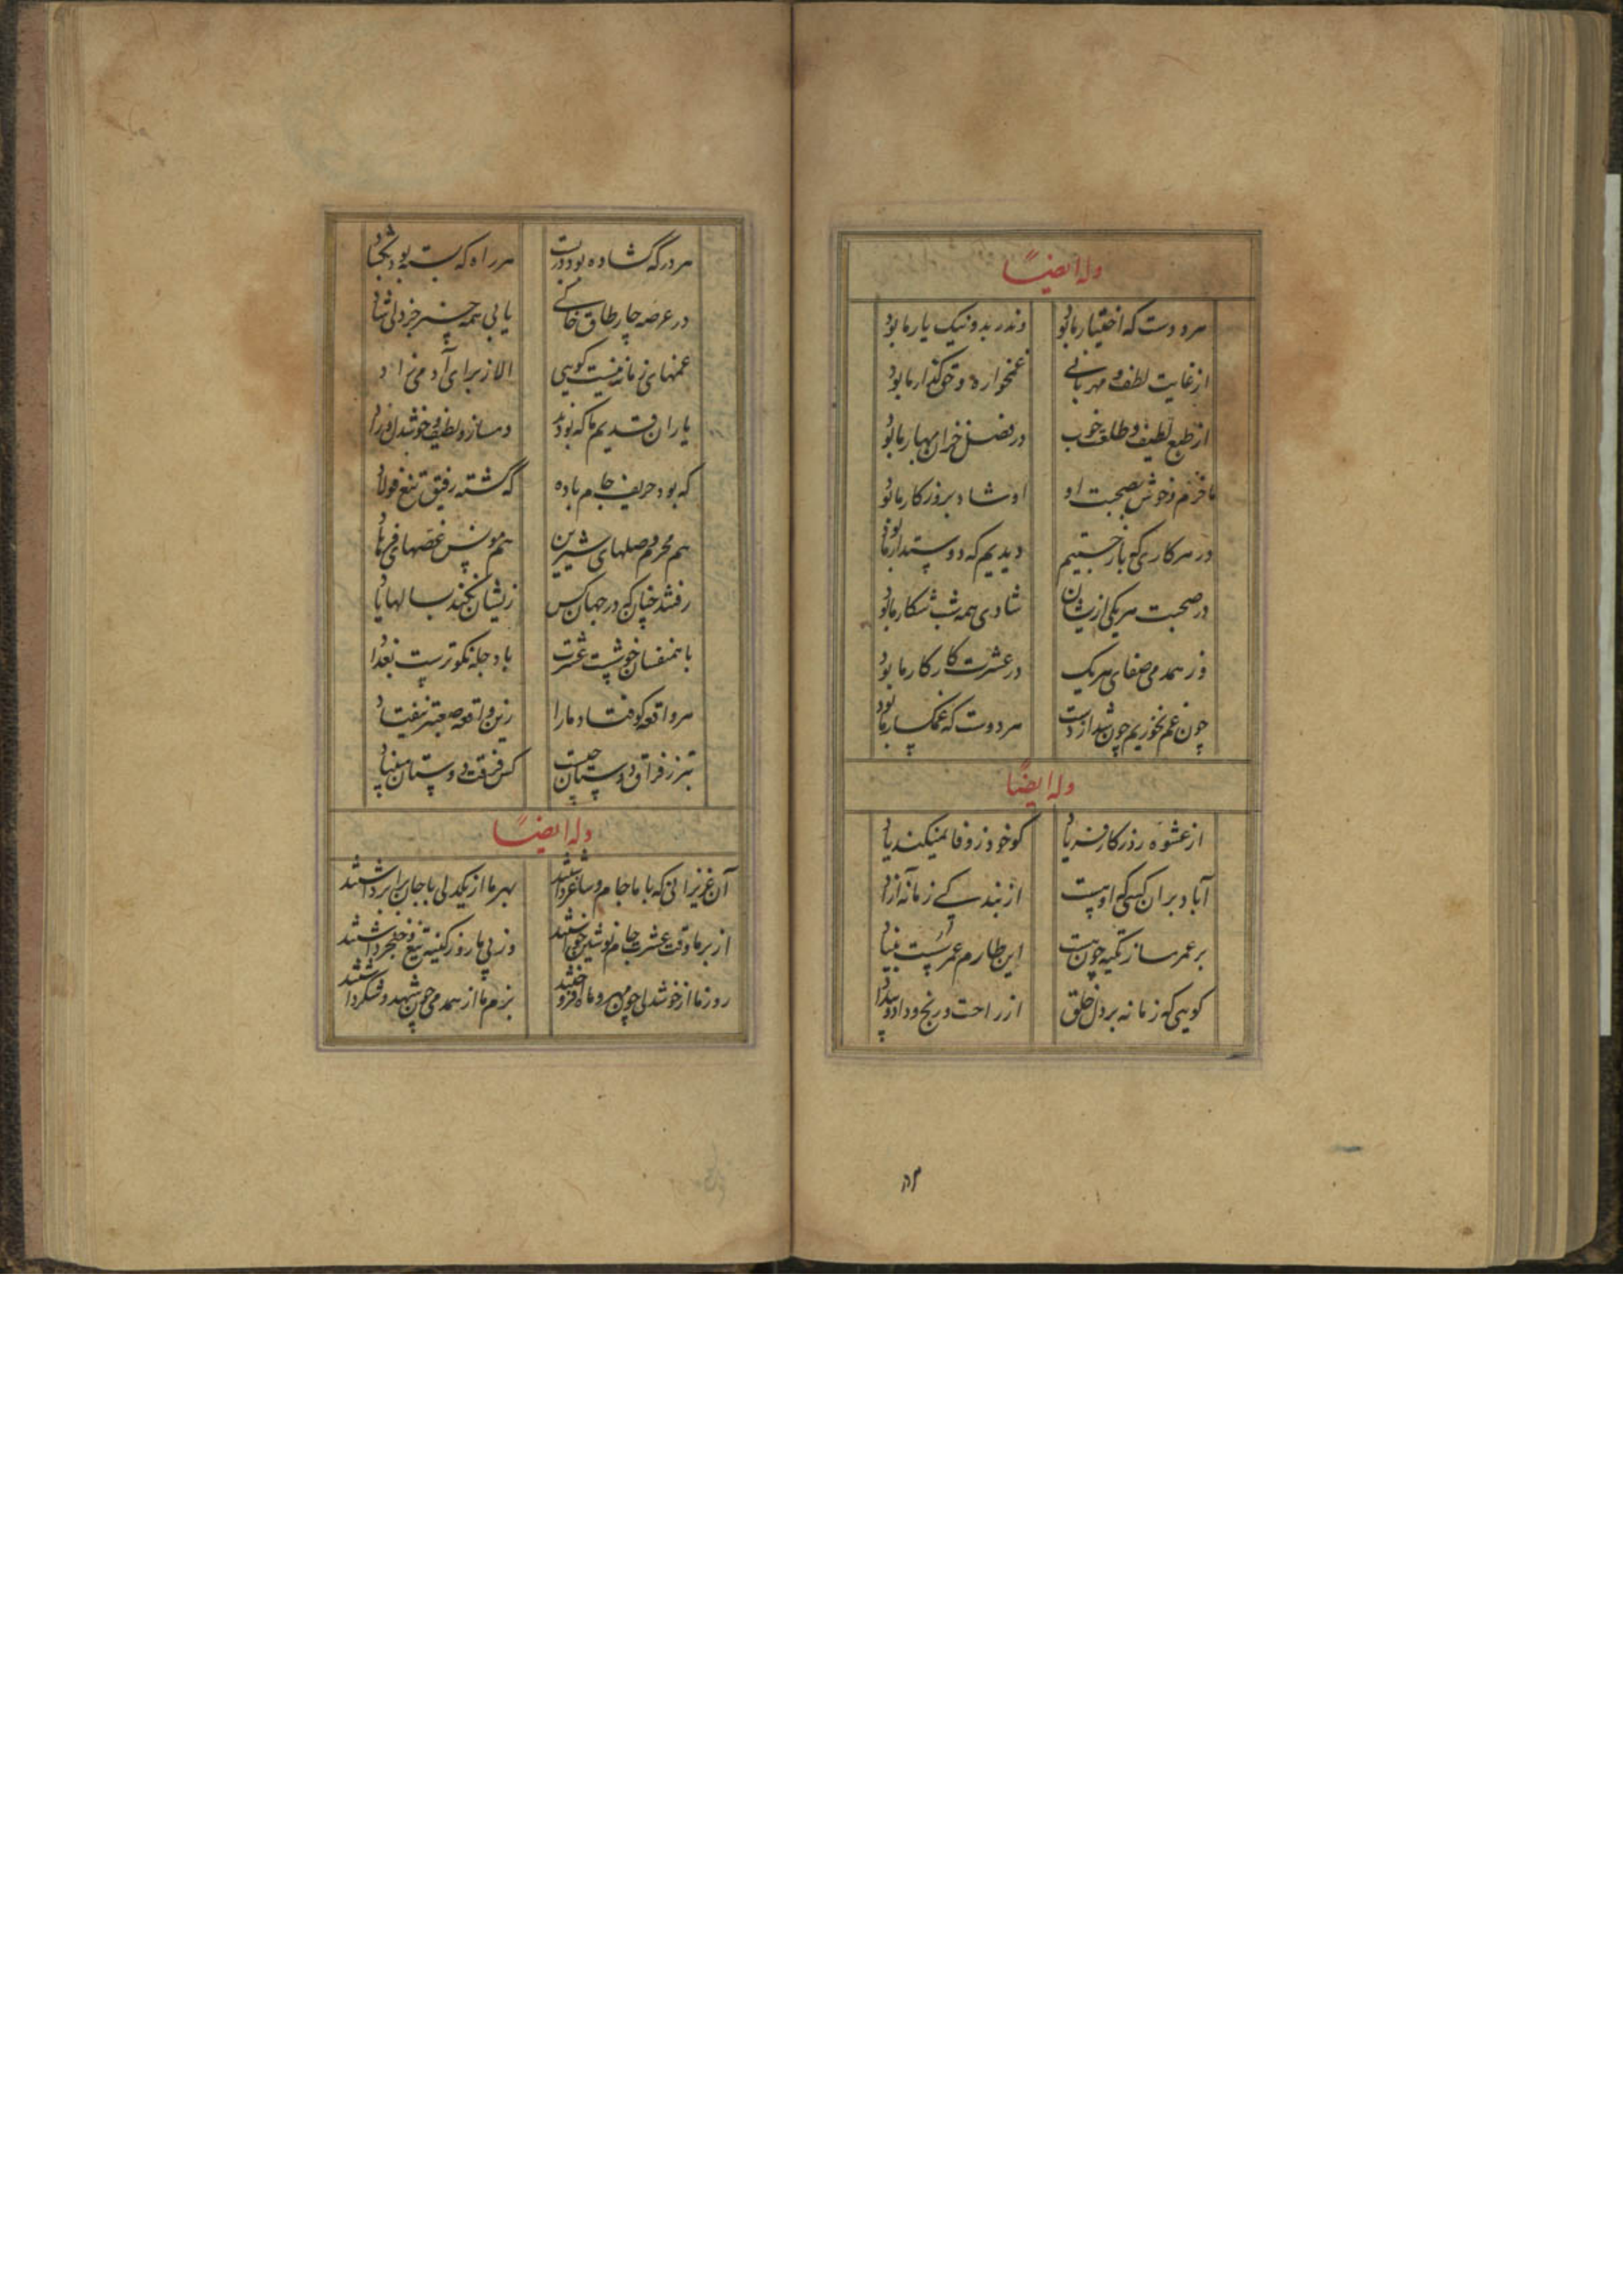 وله ایضاً
هر دوست که اختیار ما بود وندر بد و نیک یار ما بود
از غایت لطف و مهربانی غمخواره و حقگذار ما بود
از طبع لطیف و طلعت خوب در فصل خزان بهار ما بود
ما خرم و خوش بصحبت او او شاد بروزکار ما بود
در هر کاری که باز جستیم دیدیم که دوستدار ما بود
در صحبت هر یکی ازیشان شادی همه شب شکار ما بود
وز همدمی صفای هر یک در عشرت کار کار ما بود
چون غم نخوریم چون شد از دست هر دوست که غمکسار ما بود
وله ایضاً
از عشوه روزکار فریاد کو خود ز وفا نمیکند یاد
آباد بران کسی که اوست از بندکی زمانه آزاد
بر عمر مساز تکیه چون هست این طارم عمر سست بنیاد
کویی که زمانه بر دل خلق از راحت و رنج و داد و بیداد
هر در که گشاده بود در بست هر راه که بسته بود بگشاد
در عرصه چار طاق خاکی یابی همه چیز جز دلی شاد
غمهای زمانه نیست کویی الا ز برای آدمی زاد
یاران قدیم ما که بودند دمساز و لطیف و خوشدل و راد
که بود حریف جام باده گه گشته رفیق تیغ فولاد
هم محرم وصلهای شیرین هم مونس غصهای فرهاد
رفتند چنان که در جهان کس زیشان نکند بسالها یاد
با همنفسان خوشست عشرت با دجله نکوترست بغداد
هر واقعه کوفتاد ما را زین واقعه صعبتر نیفتاد
بتر ز فراق دوستان چیست کس فرقت دوستان مبیناد
وله ایضاً
آن عزیزانی که با ما جام و ساغر داشتند بهر ما از یکدلی با جان برابر داشتند
از بر ما وقت عشرت جام نوشین خواستند وز پی ما روز کینه تیغ و خنجر داشتند
روز ما از خوشدلی چون مهر و ماه افروختند بزم ما از همدمی چون شهد و شکر داشتند